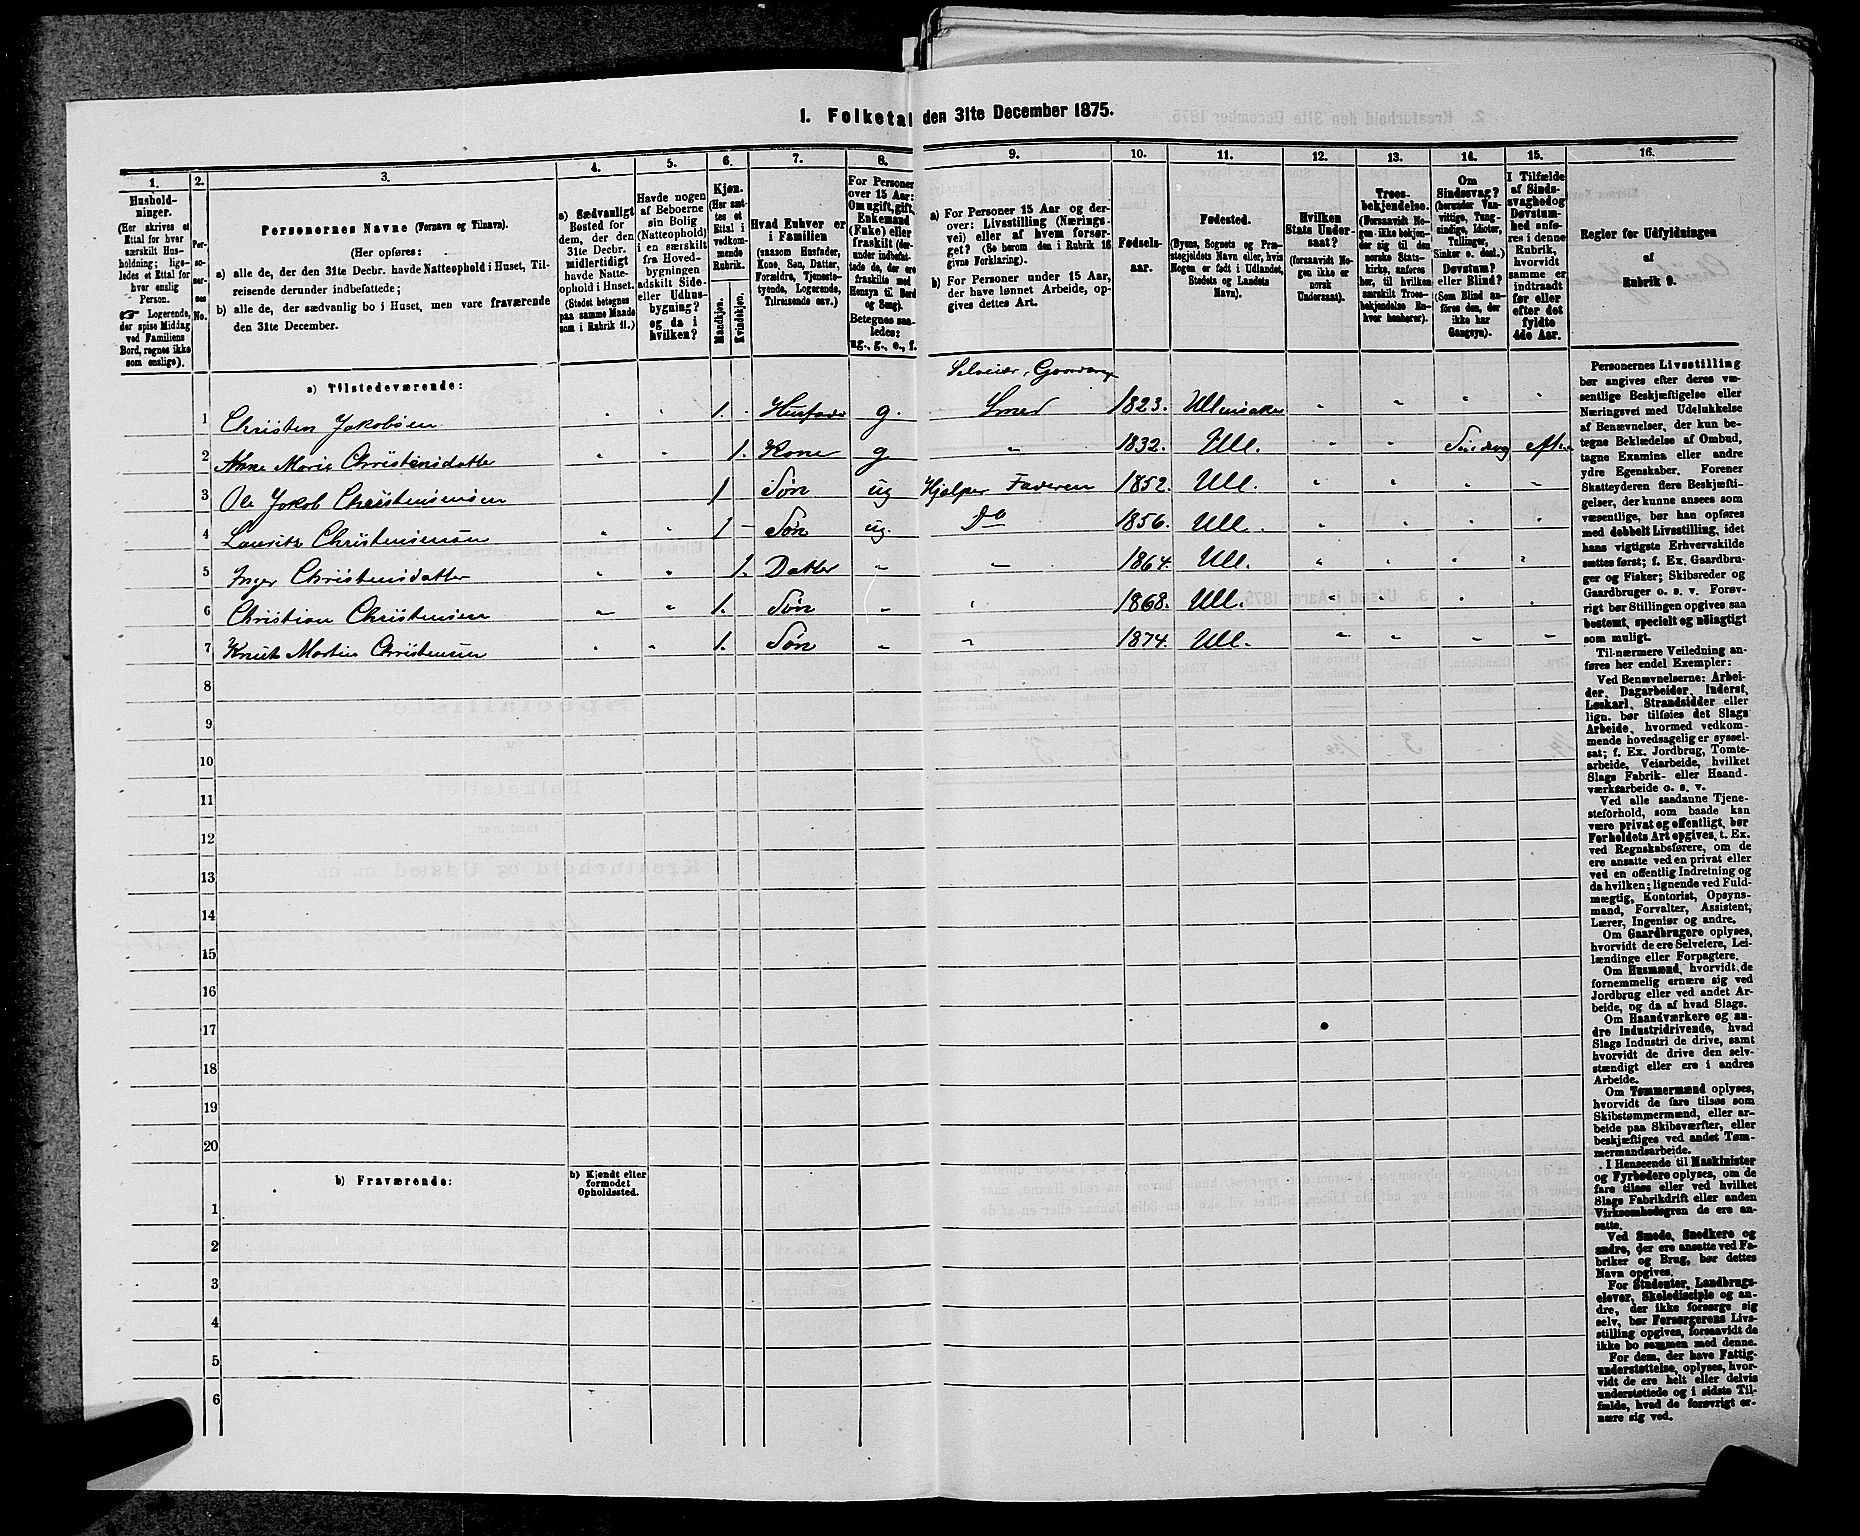 1. Folketal den 31te December 1875.
1. 2. 3. 4. 5. 6. 7. 8. 9. 10. 11. 12. 13. 14. 15. 16.
Husholdninger.
(Her skrives et Ettal for hver særskilt Husholdning; ligeledes et Ettal for hver enslig Person.
☞ Logerende, der spise Middag ved Familiens Bord, regnes ikke som enslige).
Personernes No.
Personernes Navne (Fornavn og Tilnavn).
(Her opføres:
a) alle de, der den 31te Decbr. havde Natteophold i Huset, Tilreisende derunder indbefattede;
b) alle de, der sædvanlig bo i Huset, men vare fraværende den 31te December.
a) Sædvanligt Bosted for dem, der den 31te Decbr. midlertidigt havde Natteophold i Huset. (Stedet betegnes paa samme Maade som i Rubrik 11.)
Havde nogen af Beboerne sin Bolig (Natteophold) i en særskilt fra Hovedbygningen adskilt Side- eller Udhusbygning? og da i hvilken?
Kjøn. (Her sættes et Ettal i vedkommende Rubrik.
Mandkjøn. Kvindekjøn.
Hvad Enhver er i Familien
(saasom Husfader, Kone, Søn, Datter, Forældre, Tjenestetyende, Logerende, Tilreisende osv.)
For Personer over 15 Aar: Om ugift, gift, Enkemand (Enke) eller fraskilt (derunder indbefattede de, der ere fraskilte med Hensyn til Bord og Seng).
Betegnes saaledes: ug., g., e., f.
a) For Personer 15 Aar og derover: Livsstilling (Næringsvei) eller af hvem forsørget? (Se herom den i Rubrik 16 givne Forklaring).
b) For Personer under 15 Aar, der have lønnet Arbeide, opgives dettes Art.
Fødselsaar.
Fødested.
(Byens, Sognets og Præstegjeldets Navn, eller, hvis Nogen er født i Udlandet, Stedets og Landets Navn).
Hvilken Stats Undersaat?
(forsaavidt Nogen ikke er norsk Undersaat).
Troesbekjendelse.
(Forsaavidt Nogen ikke bekjender sig til den norske Statskirke, anføres her, til hvilken særskilt Troesbekjendelse Enhver henhører).
Om Sindssvag? (herunder Vanvittige, Tungsindige, Idioter, Tullinger, Sinker o. desl.) Døvstum? eller Blind? (Som Blind anføres den, der ikke har Gangsyn).
I Tilfælde af Sindssvaghed og Døvstumhed anføres i denne Rubrik, hvorvidt samme er indtraadt før eller efter det fyldte 4de Aar.
Regler for Udfyldningen af Rubrik 9.
a) Tilstedeværende:
Selveier, Gaardbruger
1 Christen Jakobsen 1. Husfader g. Smed 1823. Ullensaker
2 Anne Marie Christensdatter 1. Kone g 1832. Ull.
3 Ole Jakob Christensen 1 Søn ug Hjelper Faderen 1852. Ull.
4 Lauritz Christensen 1 Søn ug. Do 1856. Ull.
5 Inger Christensdatter 1. Datter 1864. Ull.
6 Christian Christensen 1. Søn 1868. Ull.
7 Knut Martin Christensen 1. Søn 1874. Ull.
8
9
10
11
12
13
14
15
16
17
18
19
20
b) Fraværende:
b) Kjendt eller formodet Opholdssted.
1
2
3
4
5
6
Personernes Livsstilling
bør angives efter deres væ-
sentlige Beskjæftigelse eller
Næringsvei med Udelukkelse
af Benævnelser, der kun be-
tegne Beklædelse af Ombud,
tagne Examina eller andre
ydre Egenskaber. Forener
Skatteyderen flere Beskjæfti-
gelser, der kunne ansees som
væsentlige, bør han opføres
med dobbelt Livsstilling, idet
hans vigtigste Erhvervskilde
sættes først; f. Ex. Gaardbru-
ger og Fisker; Skibsreder og
Gaardbruger o. s. v. Forøv-
rigt bør Stillingen opgives saa
bestemt, specielt og nøiagtigt
som muligt.
Til nærmere Veiledning an-
føres her endel Exempler:
Ved Benævnelserne: Arbei-
der, Dagarbeider, Inderst,
Løskarl, Strandsidder eller
lign. bør tilføies det Slags
Arbeide, hvormed vedkom-
mende hovedsagelig er syssel-
sat; f. Ex. Jordbrug, Tomte-
arbeide, Veiarbeide, hvilket
Slags Fabrik- eller Haand-
værksarbeide o. s. v.
Ved alle saadanne Tjene-
steforhold, som baade kan
være privat og offentligt, bør
Forholdets Art opgives, t. Ex.
ved Regnskabsførere, om de
ere ansatte ved en privat eller
ved en offentlig Indretning og
da hvilken; lignende ved Fuld-
mægtig, Kontorist, Opsyns-
mand, Forvalter, Assistent,
Lærer, Ingeniør og andre.
Om Gaardbrugere oplyses,
hvorvidt de ere Selveiere, Lei-
lændinge eller Forpagtere.
Om Husmænd, hvorvidt de
fornemmelig ernære sig ved
Jordbrug eller ved andet Ar-
beide, og da af hvad Slags.
Om Haandværkere og an-
dre Industridrivende, hvad
Slags Industri de drive, samt
hvorvidt de drive den selv-
stændigt eller ere i andres
Arbeide.
Om Tømmermænd oplyses,
hvorvidt de fare tilsøs som
Skibstømmermænd, eller ar-
beide paa Skibsværfter, eller
beskjæftiges ved andet Tøm-
mermandsarbeide.
I Henseende til Maskinister
og Fyrbødere oplyses, om de
fare tilsøs eller ved hvilket
Slags Fabrikdrift eller anden
Virksomhedsgren de ere an-
satte.
Ved Smede, Snedkere og
andre, der ere ansatte ved Fa-
briker og Brug, bør dettes
Navn opgives.
For Studenter, Landbrugs-
elever, Skoledisciple og an-
dre, der ikke forsørge sig
selv, bør Forsørgerens Livs-
stilling opgives, forsaavidt de
ikke bo sammen med denne.
For dem, der have Fattig-
understøttelse, oplyses, hvor-
vidt de ere helt eller delvis
understøttede og i sidste Til-
fælde, hvad de forøvrigt er-
nære sig ved.